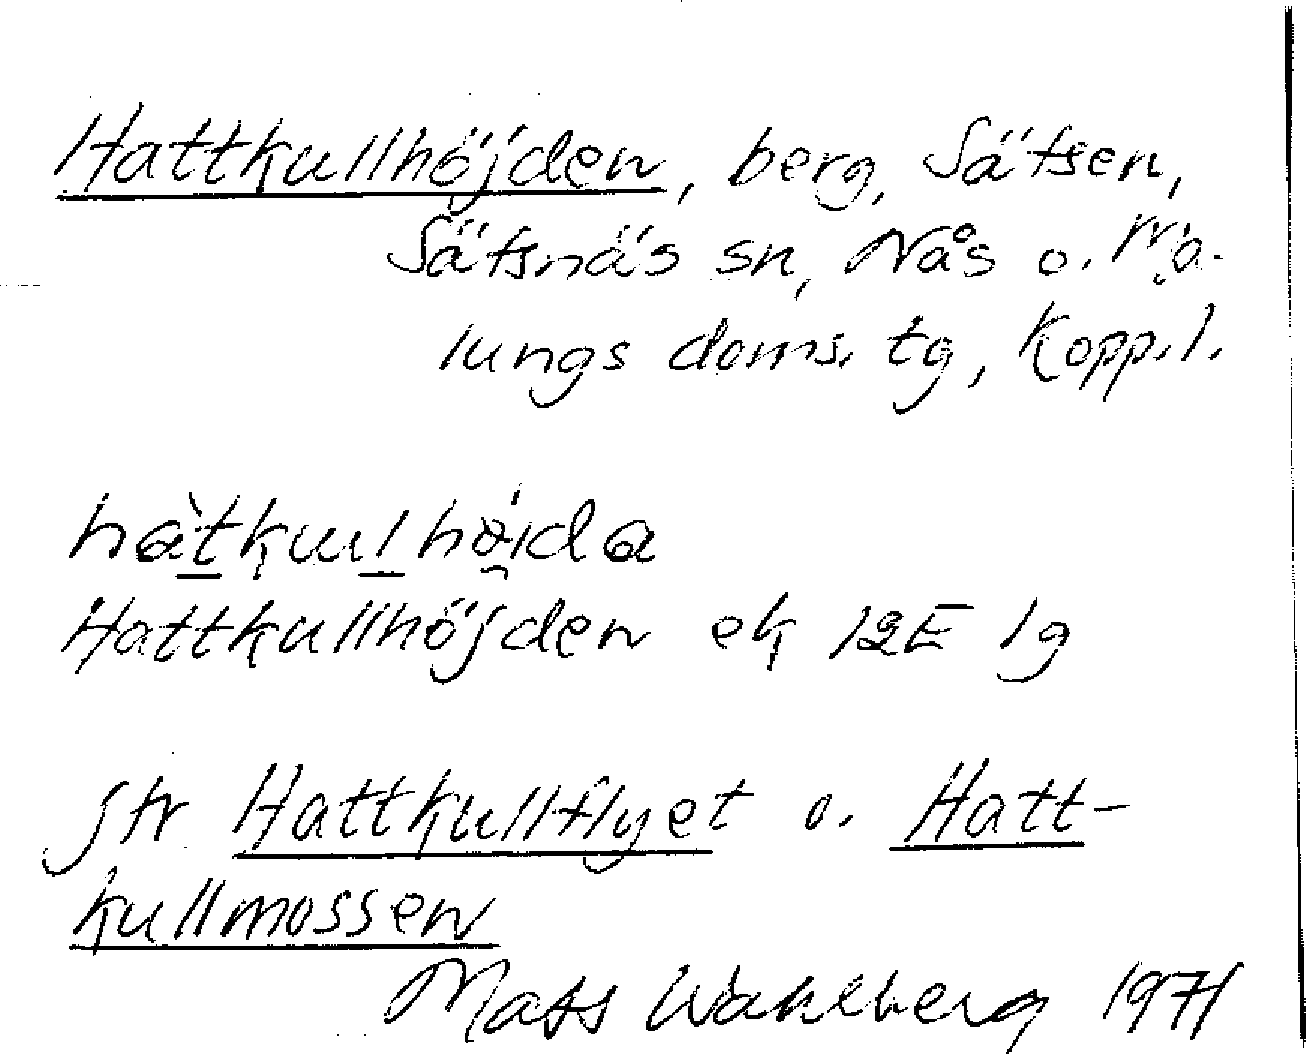 Hattkullhöjden, berg, Sätsen,
Sätsnäs sn, Nås o. Ma-
lungs doms. tg, Kopp.l.
hàtkulhöida
Hattkullhöjden ek 12E 1g
jfr Hattkullflyet o. Hatt-
kullmossen
Mats Wahlberg 1971